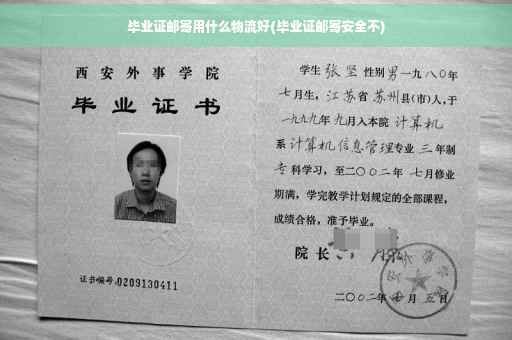 毕业证邮寄用什么物流好(毕业证邮寄安全不)
西安外事学院
毕业证书
证书编号:0209130411
学生 张坚 性别 男 一九八〇年
七月生，江苏省 苏州县(市)人，于
一九九九年 九月入本院 计算机
系 计算机信息管理专业 三 年制
专科学习，至二〇〇二年 七月修业
期满，学完教学计划规定的全部课程，
成绩合格，准予毕业。
院长
二〇〇二年 月 五日